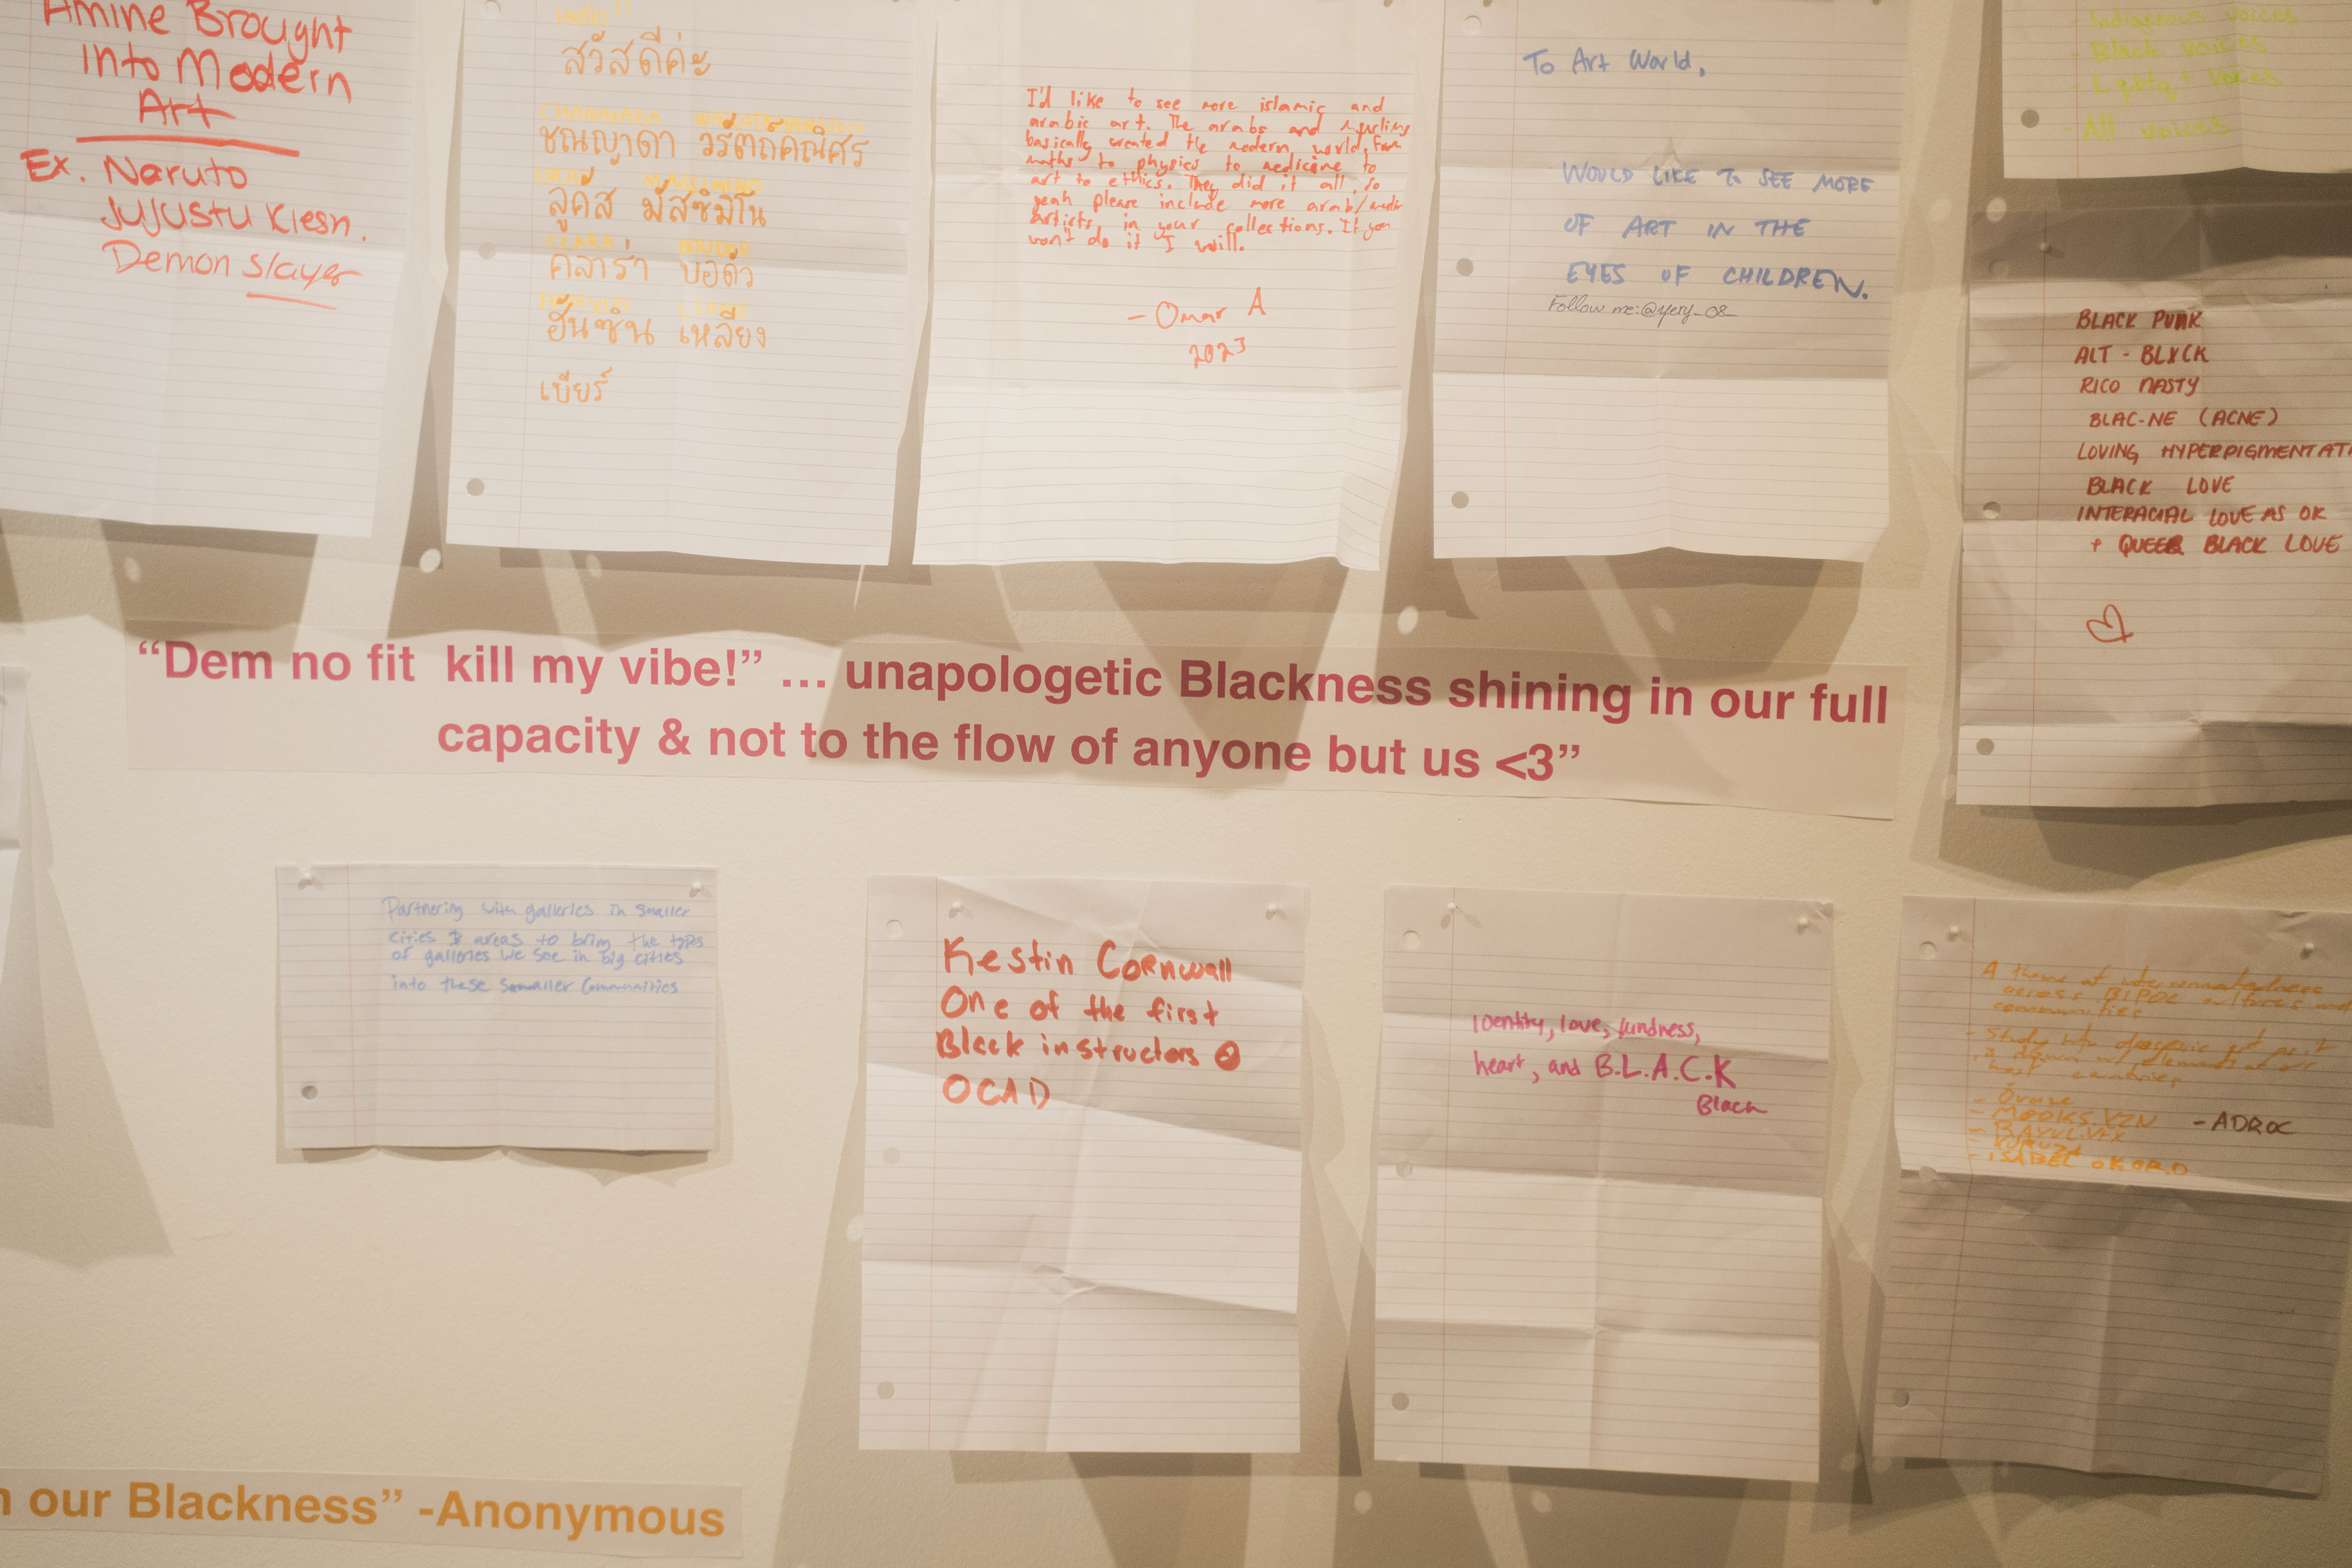 Amine Brought
Into Modern
Art
Ex. Naruto
Jujustu Kiesn.
Demon slayer
Hello!!
สวัสดีค่ะ
ชณญาดา วรัตถ์คณิศร
ลูคัส มัสซิมิโน
CLARA
คลาร่า บอดัว
ฮันซิน เหลียง
เบียร์
I'd like to see more islamic and
arabic art. The arabs and muslims
basically created the modern world, from
maths to physics to medicine to
art to ethics. They did it all. So
yeah please include more arab/
artists in your collections. If you
won't do it I will.
- Omar A
2023
To Art World,
WOULD LIKE TO SEE MORE
OF ART IN THE
EYES OF CHILDREN.
Follow me:@yery_08
- Indigenous voices
- Black voices
- Lgbtq+ voices
- All voices
BLACK PUNK
ALT - BLVCK
RICO NASTY
BLAC-NE (ACNE)
LOVING HYPERPIGMENTATI
BLACK LOVE
INTERACIAL LOVE AS OK
+ QUEER BLACK LOVE
“Dem no fit kill my vibe!” ... unapologetic Blackness shining in our full
capacity & not to the flow of anyone but us <3”
Partnering with galleries in smaller
cities & areas to bring the types
of galleries we see in big cities
into these smaller Communities
Kestin Cornwall
One of the first
Black instructors @
OCAD
Identity, love, kindness,
heart, and B.L.A.C.K
Black
A theme of interconnectedness
across BIPOC cultures and
communities
- Study
- MOOKS.VZN - ADROC
- ISABEL OKORO
n our Blackness” -Anonymous